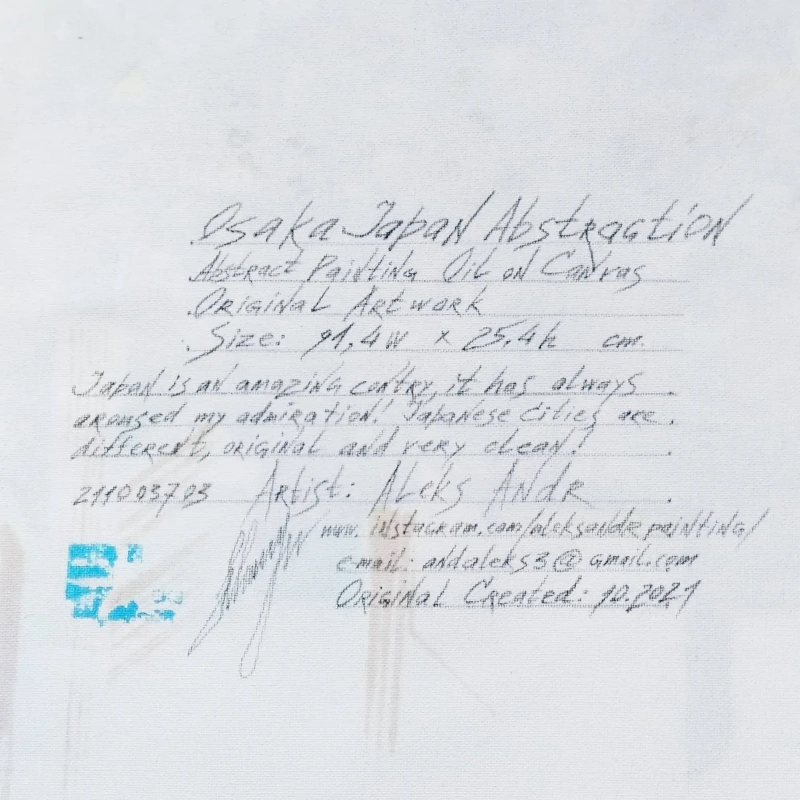 Osaka Japan Abstraction
Abstract Painting Oil on Canvas
Original Artwork
Size: 91,4w x 25,4h cm.
Japan is an amazing contry, it has always
aroused my admiration! Japanese cities are
different, original and very clean!
211003703 Artist: Aleks Andr
www.instagram.com/aleksandr.painting/
e-mail: andaleks3@gmail.com
Original Created: 10.2021